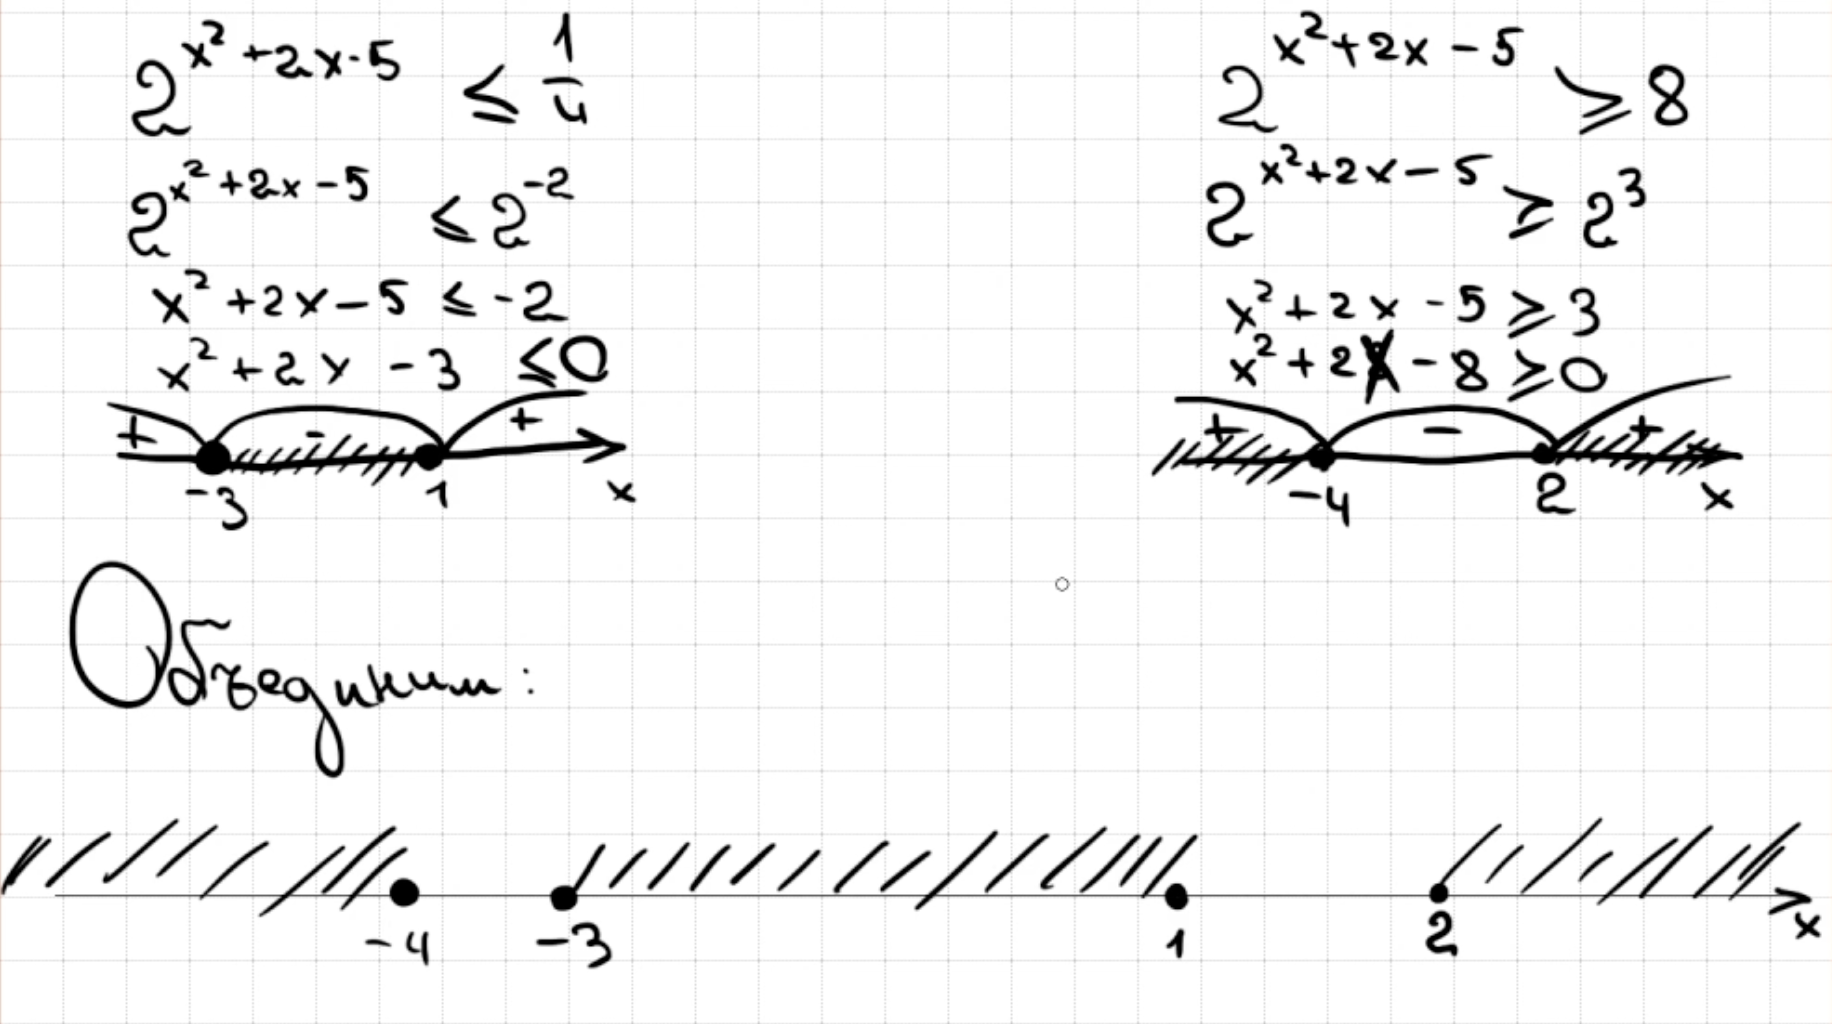 2^{x²+2x-5} ≤ 1/4
2^{x²+2x-5} ≤ 2^{-2}
x²+2x-5 ≤ -2
x²+2x-3 ≤ 0
+ - +
-3 1 x
2^{x²+2x-5} ≥ 8
2^{x²+2x-5} ≥ 2³
x²+2x-5 ≥ 3
x²+2x-8 ≥ 0
+ - +
-4 2 x
Объединим:
-4 -3 1 2 x